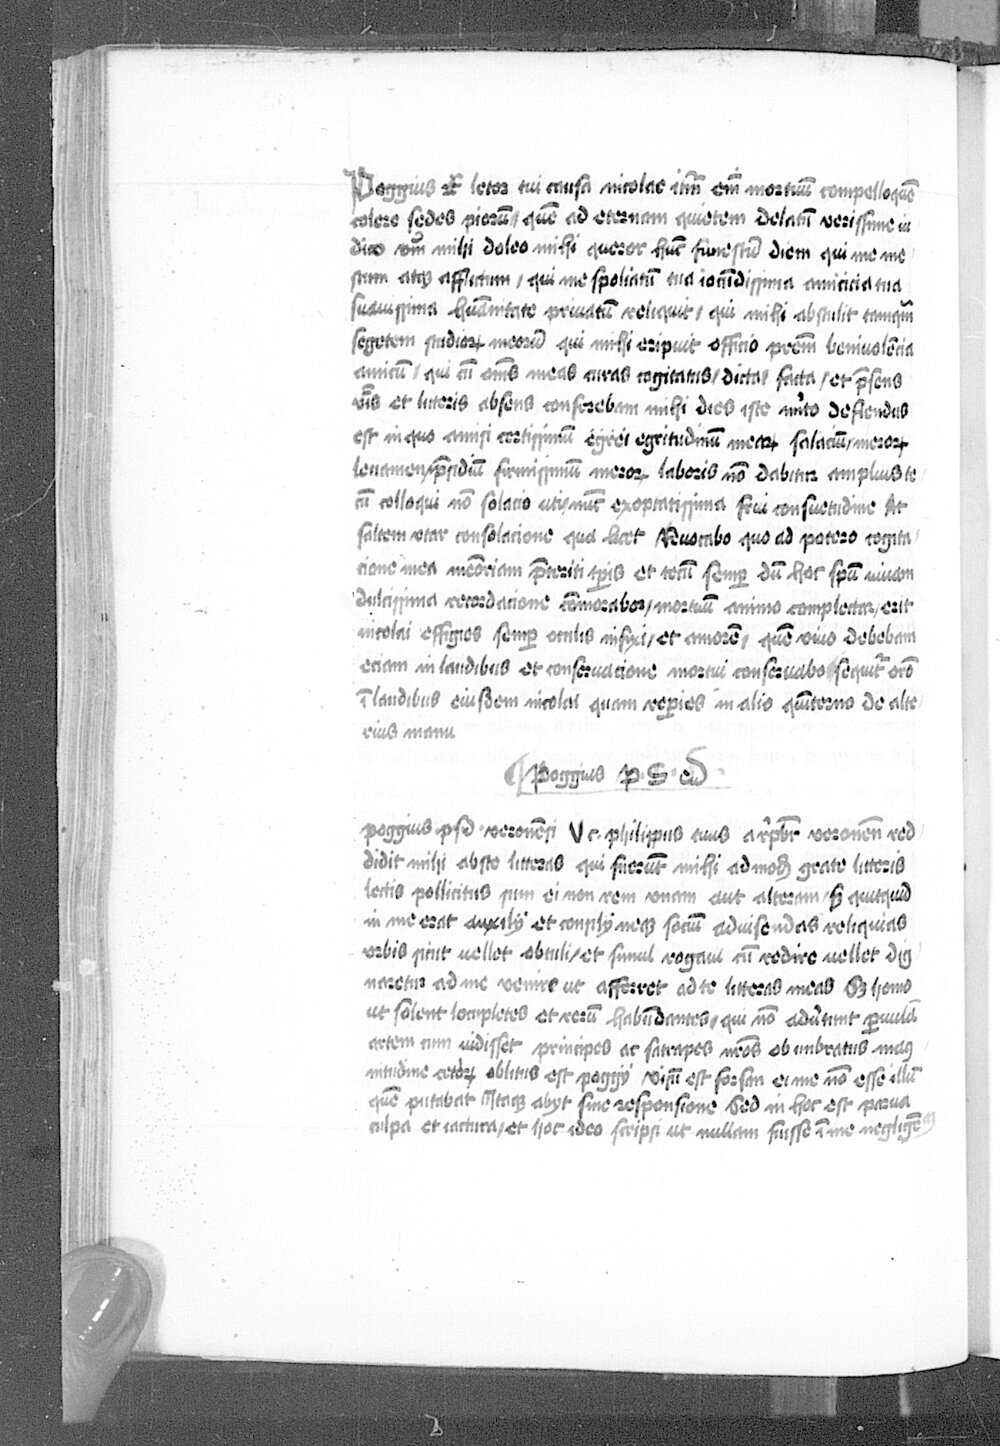 Poggius & letor tui causa nicolae itm̄ em̄ mortuū compelloquē
colere sedes piorū / quē ad eternam quietem delatū verissime iu
dico vm̄ mihi doleo mihi queror hūc funestū diem qui me me
stum atq afflictum / qui me spoliatū tua iocūdissima amicicia tua
suauissima hūanitate priuatū reliquit / qui mihi abstulit tamqm̄
segetem studiorꝝ meorū qui mihi eripuit officio prēm beniuolēcia
amicū / qui cū om̄s meas curas cogitatus / dicta / facta / et p̄sens
v̄bis et litteris absens conferebam mihi dies iste mr̄to deflendus
est in quo amisi certissimū egritudinū mearꝝ solaciū / merorꝝ
leuamen / p̄sidiū firmissimū merorꝝ laboris nō dabitur amplius te
cū colloqui nō solacio uti / nūc exoptatissima frui consuetudine At
saltem utar consolacione qua licet Reuocabo quo ad potero cogita
cione mea memōriam p̄teriti tp̄is et tecū semper dū hoc spū viuam
dulcissima recordacione cōmorabor / mortuū animo complectar / erit
nicolai effigies semper oculis infixi / et amorē / quē viuo debebam
eciam in laudibus et conseruacione mortui conseruabo sequit orō
ī laudibus eiusdem nicolai quam reperies in alio quīterno de alte
rius manu
Poggius P. S. eid
poggius p s d veronēsi Vc philippus tuus arp̄br veronen̄ red
didit mihi abs te litteras qui fuerūt mihi admodū grate litteris
lectis pollicitus sum ei non rem vnam aut alteram / sȝ quitquid
in me erat auxilÿ et consilÿ neqȝ sociū aduisendas reliquias
vrbis sicut vellet obtuli / et simul rogaui cū redire uellet dig
naretur ad me venire ut afferret ad te litteras meas Sȝ homo
ut solent locupletes et rerū habūdantes / qui nō aduertunt paruulā
artem cum uidisset principes ac satrapes nr̄os obumbratus mag
nitudine ceterorꝝ oblitus est poggÿ visū est forsan ei me nō esse illū
quē putabat Itaqȝ abyt sine responsione Sed in hoc est parua
culpa et iactura / et hoc ideo scripsi ut nullam fuisse ī me negligē